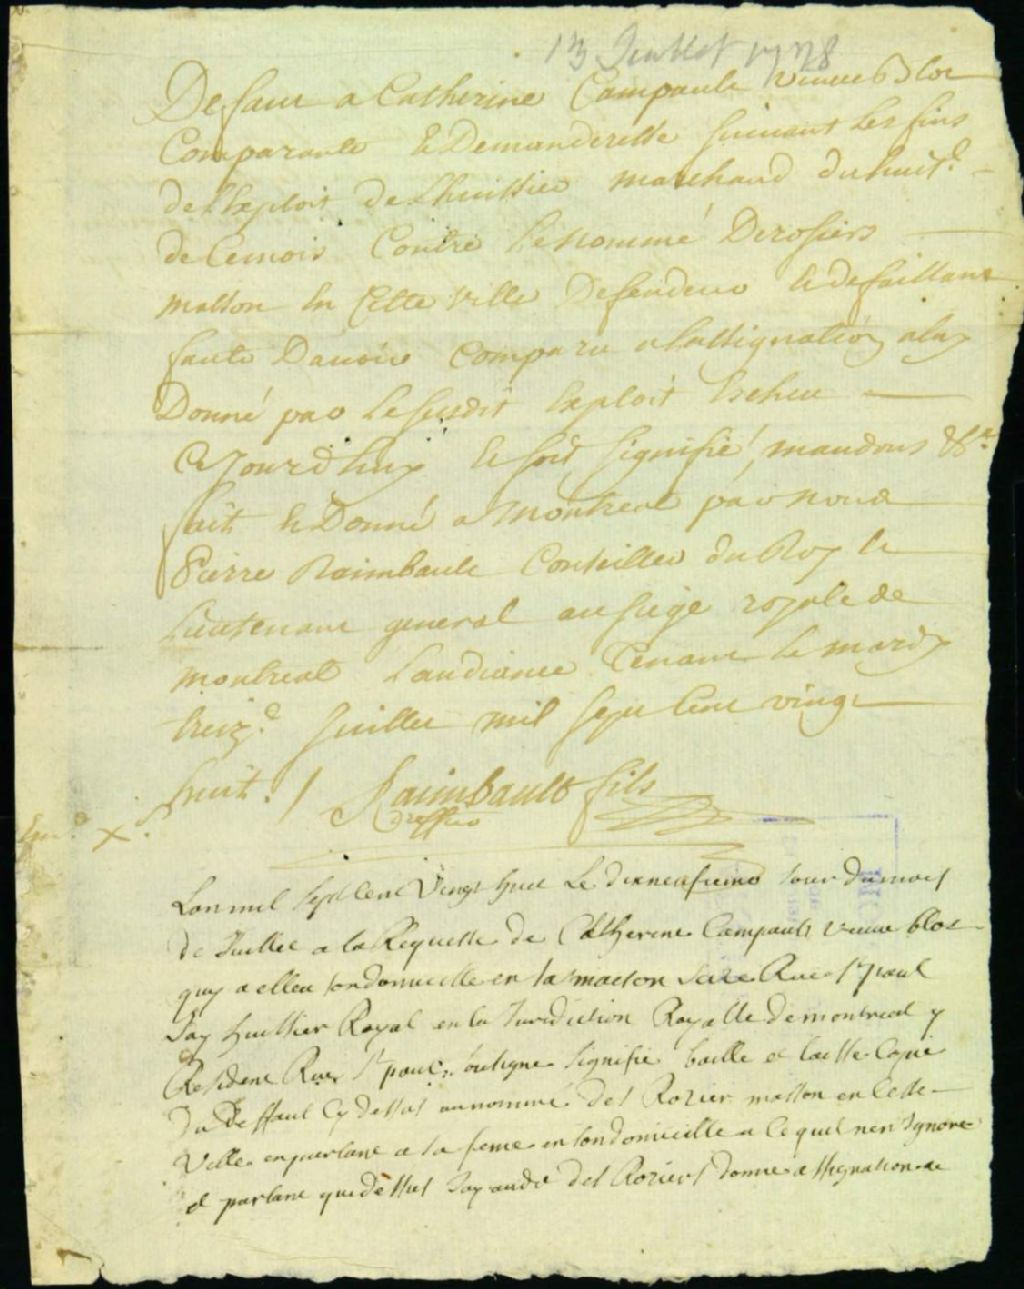 13 Juillet 1728
Defaut a Catherine Campault veuve Blot
Comparante & Demanderesse suivant les fins
de lexploit de Lhuissier marchand du huit.e
de Cemois Contre le nommé Derosiers
masson En Cette ville Defendeur & defaillant
faute Davoir Comparu a lassignation a luy
Donné par le susdit Exploit Escheu
Cejourdhuy & soit signifié, mandons &c.
fait & Donné a Montreal par nous
Pierre Raimbault Conseiller du Roy &
Lieutenant general au siege royale de
montreal Laudiance Tenant le mardy
treiz.e Juillet mil sept Cent vingt
huit. / Raimbault fils
Greffier
Lan mil sept Cent Vingt huit Le dixneufieme Jour du mois
de Juillet a la Requeste de Catherine Campault veuve blot
quy a elleu son domicille en sa maison size Rue St paul
Jay huissier Royal en la Juridiction Royalle de montreal y
Resident Rue St paul, soussigne signifie baille et laisse Copie
du Deffaut Cy dessus au nommé Des Rozier masson en Cette
Ville en parlant a sa feme en son domicille a Ce quil nen Ignore
et parlant que dessus Jay audit Des Roziers donne assignation a